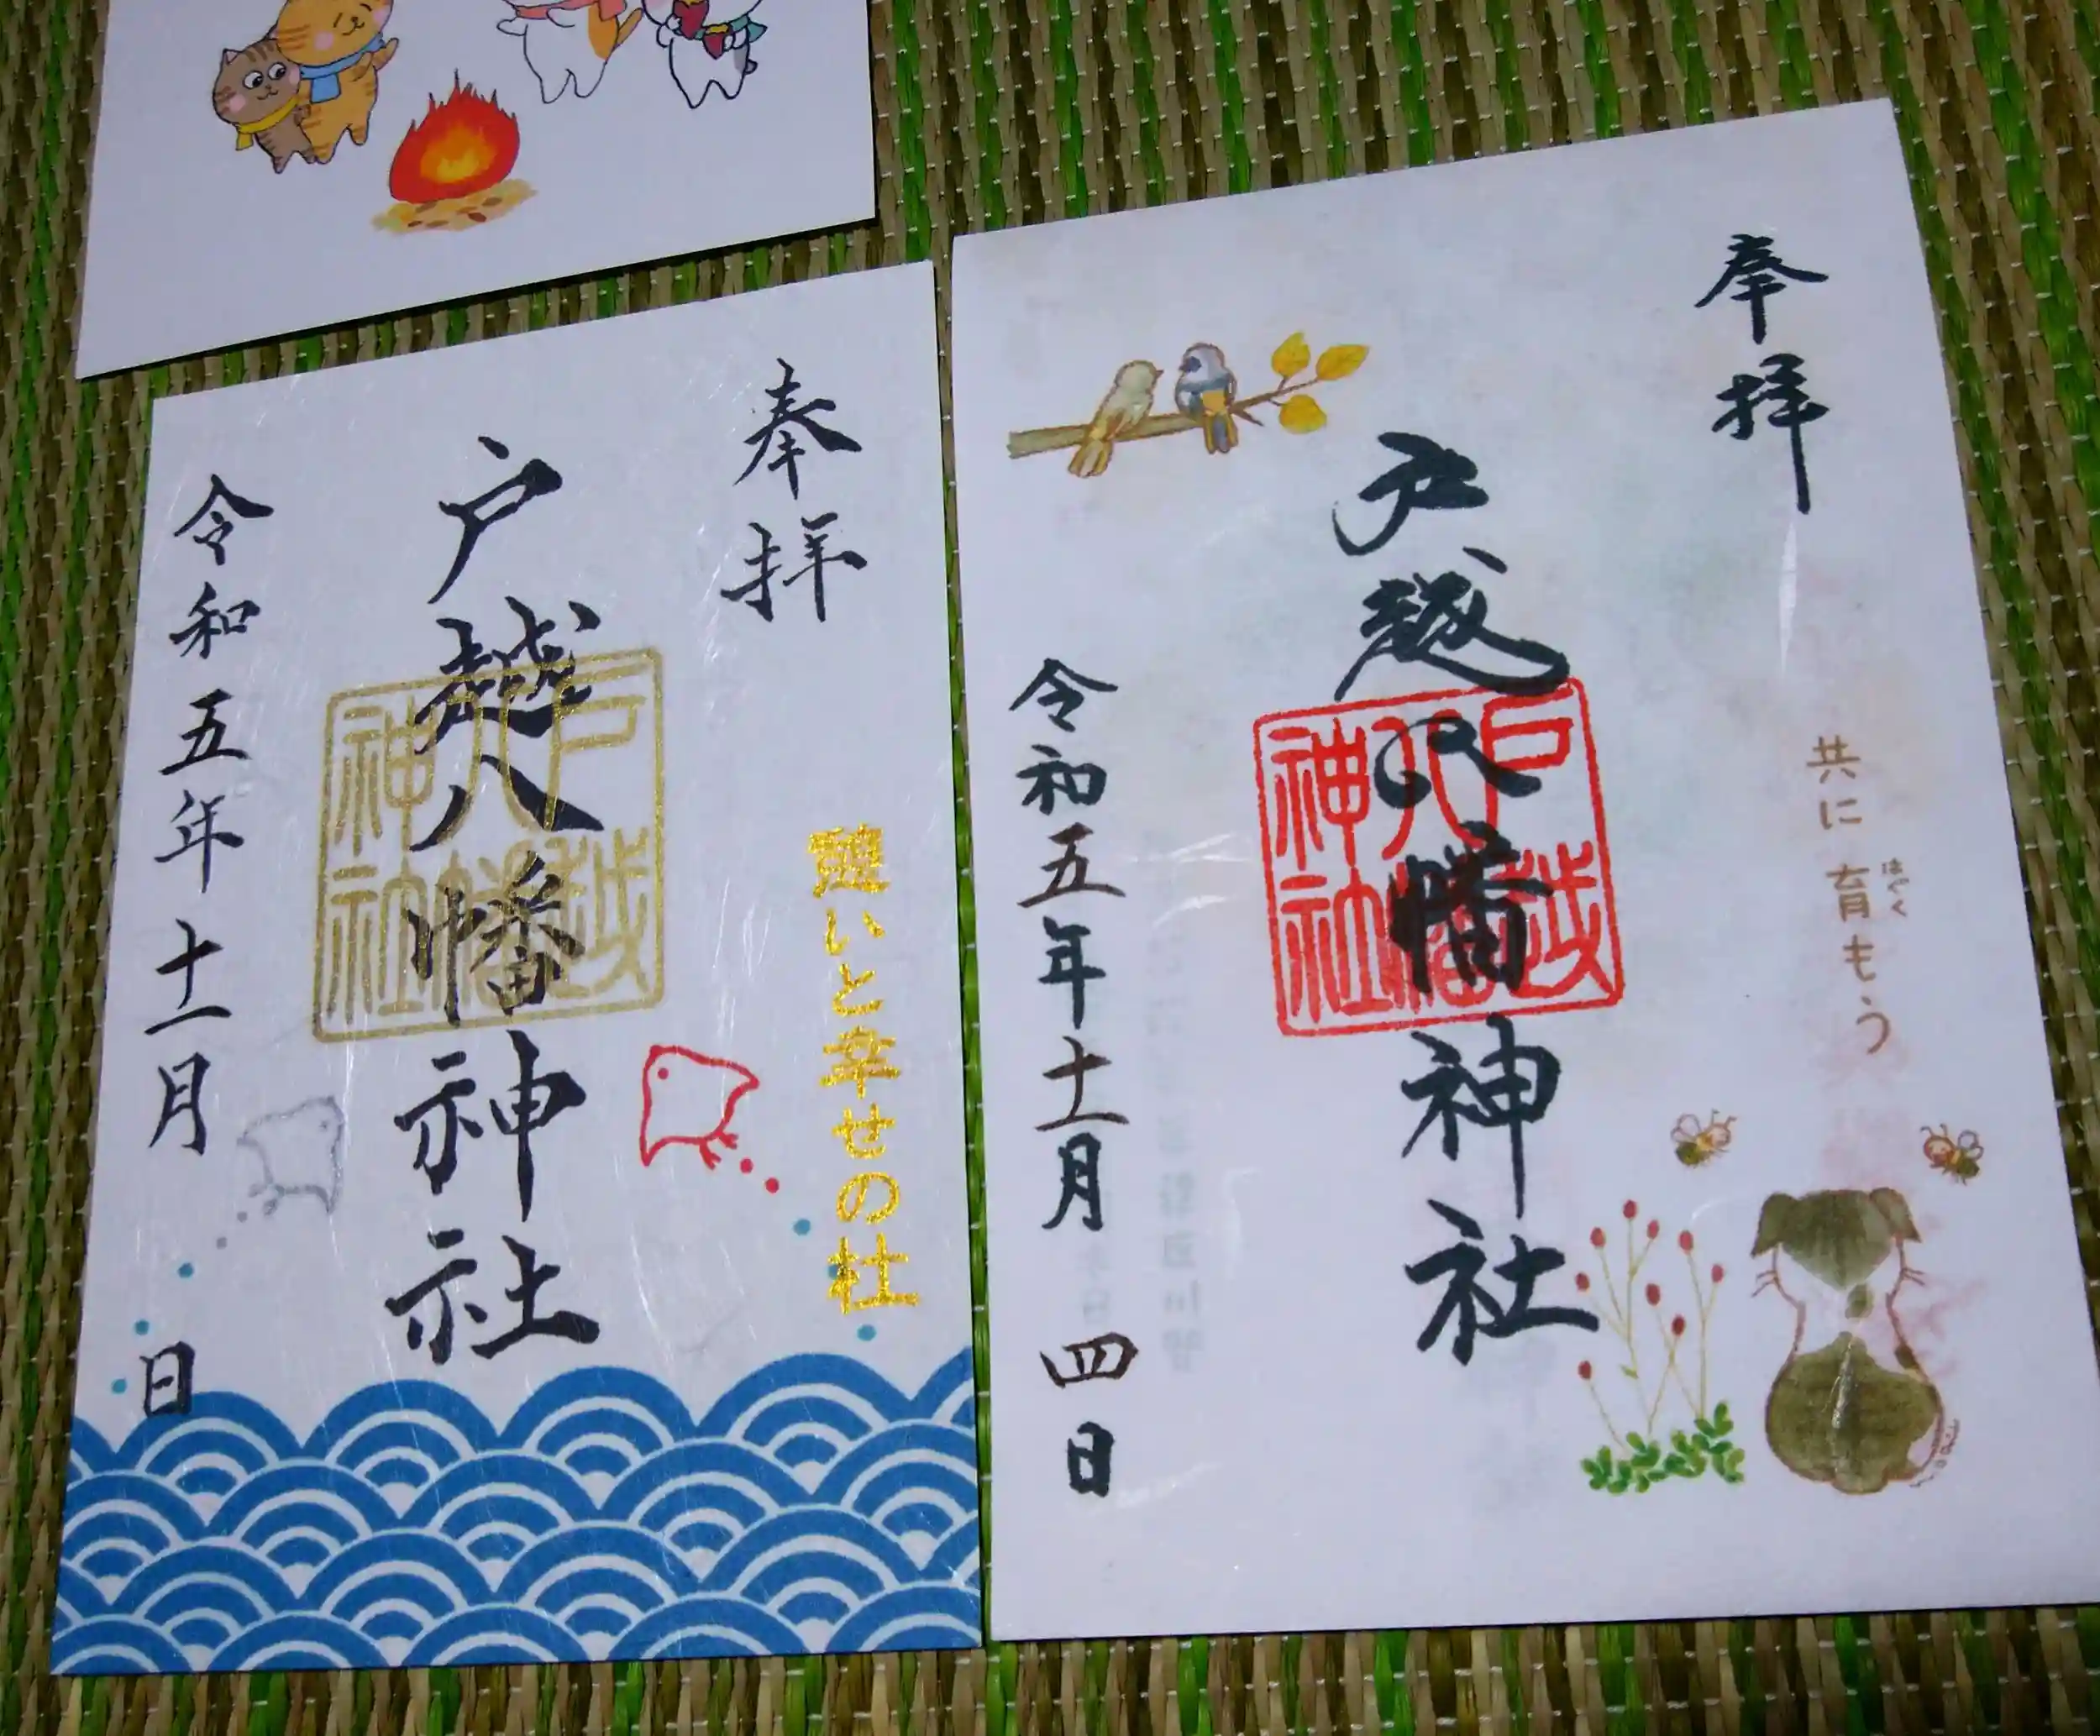 奉拝
戸越八幡神社
戸越
八幡
神社
憩いと幸せの杜
令和五年十一月 日
奉拝
共に育もう
はぐく
戸越八幡神社
戸越
八幡
神社
令和五年十一月四日